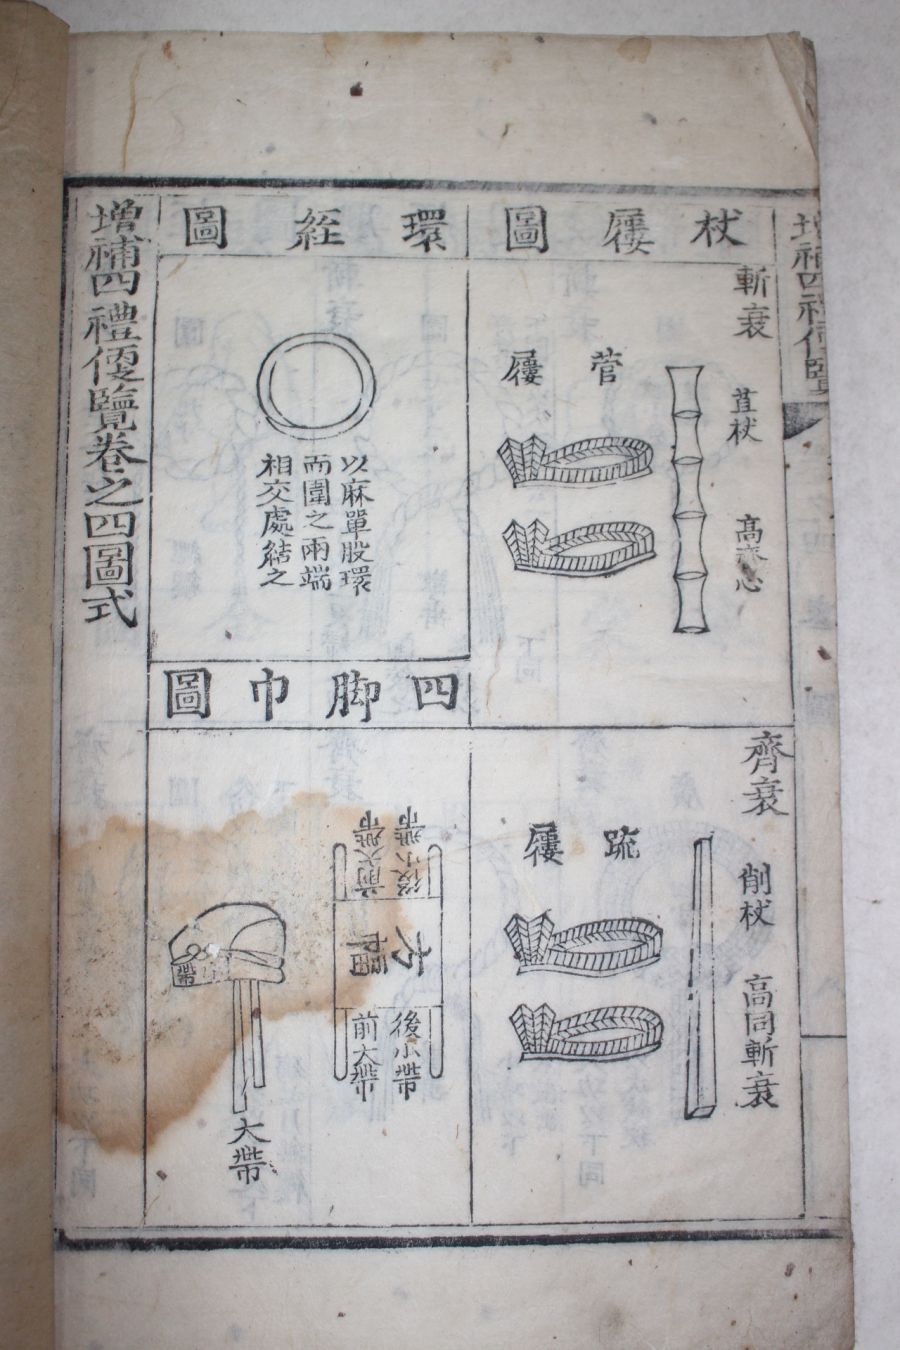 杖屨圖
斬衰
苴杖
高齊心
菅屨
齊衰
削杖
高同斬衰
疏屨
環絰圖
以麻單股環
而圍之兩端
相交處結之
四脚巾圖
後小帶
前大帶
後小帶
前大帶
大帶
帶
增補四禮便覽卷之四圖式
增補四禮便覽